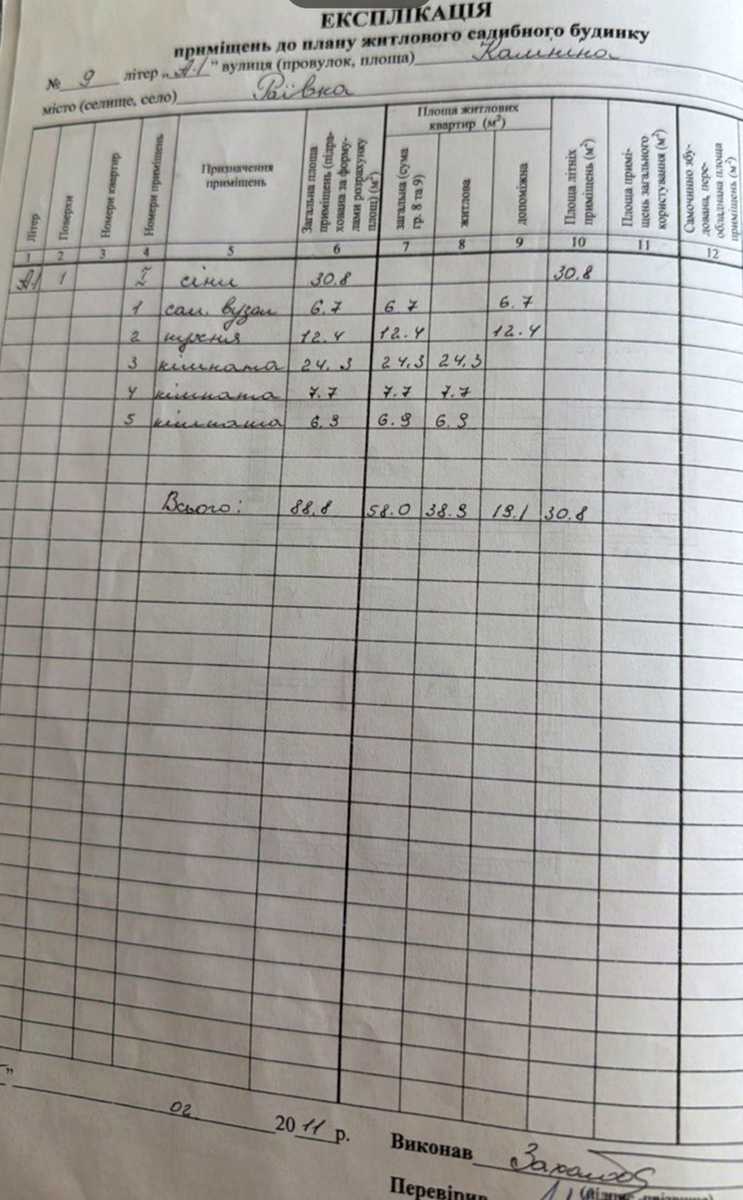 ЕКСПЛІКАЦІЯ
приміщень до плану житлового садибного будинку
№ 9 літер „А-1" вулиця (провулок, площа) Калініна
місто (селище, село) Раївка
Літер
Поверхи
Номери квартир
Номери приміщень
Призначення приміщень
Загальна площа приміщень (підрахована за формулами розрахунку площ) (м²)
Площа житлових квартир (м²)
загальна (сума гр. 8 та 9)
житлова
допоміжна
Площа літніх приміщень (м²)
Площа приміщень загального користування (м²)
Самочинно збудована, переобладнана площа приміщень (м²)
1 2 3 4 5 6 7 8 9 10 11 12
А1 1 I сіни 30.8 30.8
1 сан. вузол 6.7 6.7 6.7
2 кухня 12.4 12.4 12.4
3 кімната 24.3 24.3 24.3
4 кімната 7.7 7.7 7.7
5 кімната 6.9 6.9 6.9
Всього: 88.8 58.0 38.9 19.1 30.8
" 02 2011 р.
Виконав
Перевірив